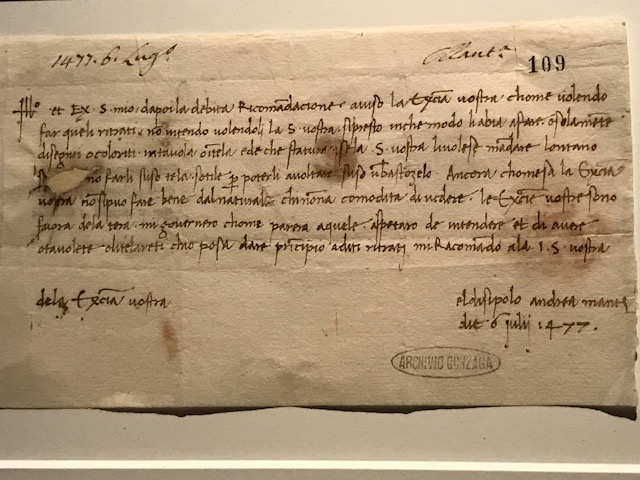 1477. 6. Lugo.
Mant.a
109
Illo et Ex. S. mio, dapoi la debita Ricomãdacione. aviso la Excia vostra chome volendo
far queli ritrati, no intendo volendoli la S. vostra, si presto in che modo li abia afare, o solamẽte
disegnati o coloriti in tavola o in tela e de che statura. se la S. vostra li volese mãdare lontano
nõ farli suso tela sotile p poterli avoltare suso ũ bastõzelo. Ancora chome sa la Excia
vostra nõ si può fare bene dal naturale chi nõ na comodita di vedere. le Excie vostre sono
fuora de la tera. mi governerò chome parera aquele. aspetaro de intendere et di avere
o tavolete o li telareti chio posa dare prĩcipio a diti ritrati mi Racomãdo a la I. S. vostra
dela Excia vostra
el disipolo andrea mante
die 6 julij 1477.
ARCHIVIO GONZAGA